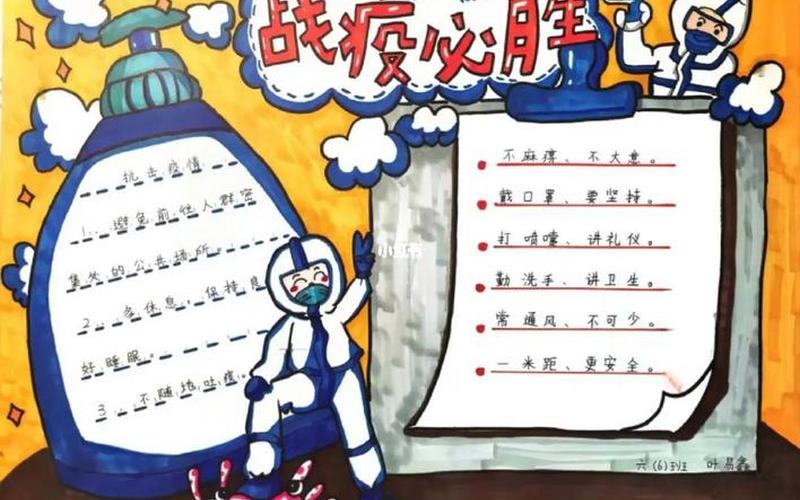 战疫必胜
抗击疫情
1、避免前往人群密
集的公共场所。
2、多休息，保持良
好睡眠。
3、不随地吐痰。
小红书
不麻痹、不大意。
戴口罩、要坚持。
打喷嚏、讲礼仪。
勤洗手、讲卫生。
常通风、不可少。
一米距、更安全。
六(6)班 叶易鑫